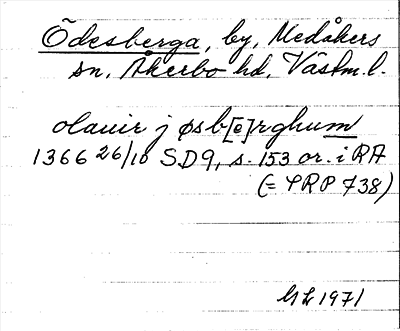 Ödesberga, by, Medåkers
sn, Åkerbo hd, Västm.l.
olauir j øsb[e]rghum
1366 26/10 SD9, s. 153 or. i RA
(= SRP 738)
1971